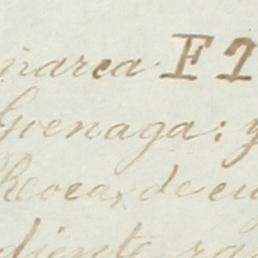 marca F1
Goenaga: y
Reoca, de cu
diente ra